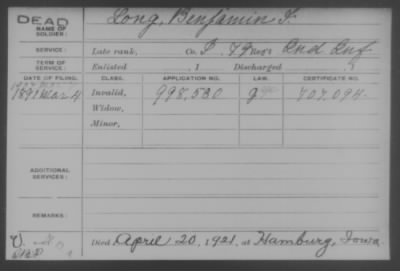 DEAD
NAME OF SOLDIER:
Long, Benjamin F.
SERVICE:
Late rank, Co. I. 79 Reg't Ind Inf
TERM OF SERVICE:
Enlisted , 1 Discharged , 1
DATE OF FILING. CLASS. APPLICATION NO. LAW. CERTIFICATE NO.
1891 Mar 4 Invalid, 998,530 707,094
Widow,
Minor,
ADDITIONAL SERVICES:
REMARKS:
Died April 20, 1921, at Hamburg, Iowa.